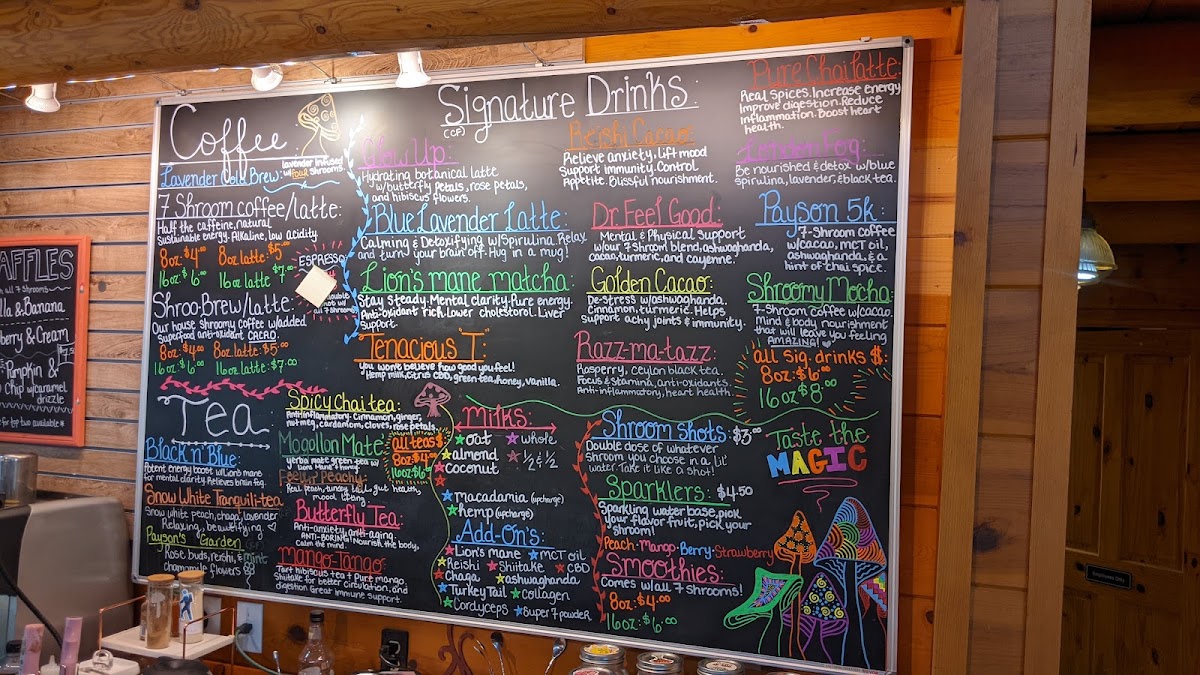 AFFLES
all 7 shrooms
lla & Banana
berry & Cream
Pumpkin &
Chip w/caramel
drizzle
for top two available #
Coffee
Lavender Cold Brew: lavender infused
w/ FOUR shrooms.
7 Shroom coffee/latte:
Half the caffeine, natural
Sustainable energy. Alkaline, low acidity
8oz: $4.00 8oz latte: $5.00
16oz: $6.00 16oz latte: $7.00
ESPRESSO
double
not w/
all 7
shrooms
Shroo-Brew/latte:
Our house shroomy coffee w/added
Superfood anti-oxidant CACAO.
8oz: $4.00 8oz latte: $5.00
16oz: $6.00 16oz latte: $7.00
Tea
Black n' Blue:
Potent energy boost w/Lion's mane
for mental clarity. Relieves brain fog.
Snow White Tranquili-tea
Snow white peach, chaga, lavender
Relaxing, beautifying.
Payson's Garden
Rose buds, reishi, & mint
chamomile flowers
Spicy Chai tea:
Anti-inflammatory. Cinnamon, ginger,
nutmeg, cardamom, cloves, rose petals.
Mogollon Mate:
yerba mate green tea w/
Lions Mane & honey.
Feelin' Peachy:
Real peach, turkey tail, gut health,
mood lifting
Butterfly Tea:
Anti-anxiety, anti-aging.
ANTI-BORING! Nourish the body,
Calm the mind.
Mango-Tango:
Tart hibiscus tea & Pure mango.
Shiitake for better circulation, and
digestion Great immune support.
all teas $
8oz: $4.00
16oz: $6.00
Signature Drinks:
(CF)
Glow Up:
Hydrating botanical latte
w/butterfly petals, rose petals,
and hibiscus flowers.
Blue Lavender Latte:
Calming & Detoxifying w/Spirulina. Relax
and turn your brain off. Hug in a mug!
Lion's mane matcha:
Stay Steady. Mental clarity. Pure energy.
Anti-oxidant rich. Lower cholesterol. Liver
Support.
Tenacious "T"
You won't believe how good you feel!
Hemp milk, Citrus CBD, green tea, honey, vanilla.
Reishi Cacao:
Relieve anxiety. Lift mood
Support immunity. Control
Appetite. Blissful nourishment.
Dr Feel Good:
Mental & Physical Support
w/our 7 shroom blend, ashwaghanda,
cacao, turmeric, and cayenne.
Golden Cacao:
De-stress w/ashwaghanda.
Cinnamon, turmeric. Helps
support achy joints & immunity.
Razz-ma-tazz:
Rasperry, ceylon black tea.
Focus & Stamina, anti-oxidants.
Anti-inflammatory, heart health.
Pure Chai latte:
Real spices. Increase energy
Improve digestion. Reduce
Inflammation. Boost heart
health.
London Fog:
Be nourished & detox w/blue
spirulina, lavender, & black tea.
Payson 5k:
7-Shroom coffee
w/cacao, MCT oil,
ashwaghanda, & a
hint of thai spice.
Shroomy Mocha:
7-Shroom coffee w/cacao.
Mind & body nourishment
that will leave you feeling
AMAZING!
all Sig. drinks $:
8oz: $6.00
16oz $8.00
Milks:
oat whole
almond ½ & ½
coconut
macadamia (upcharge)
hemp (upcharge)
Add-On's:
Lion's mane MCT oil
Reishi Shiitake CBD
Chaga ashwaganda
Turkey Tail collagen
Cordyceps Super 7 powder
Shroom Shots: $3.00
Double dose of whatever
Shroom you choose in a lil'
water. Take it like a shot!
Sparklers: $4.50
Sparkling water base, pick
your flavor fruit, pick your
shroom!
Peach-Mango-Berry-Strawberry
Smoothies:
Comes w/all 7 shrooms!
8oz: $4.00
16oz: $6.00
Taste the
MAGIC